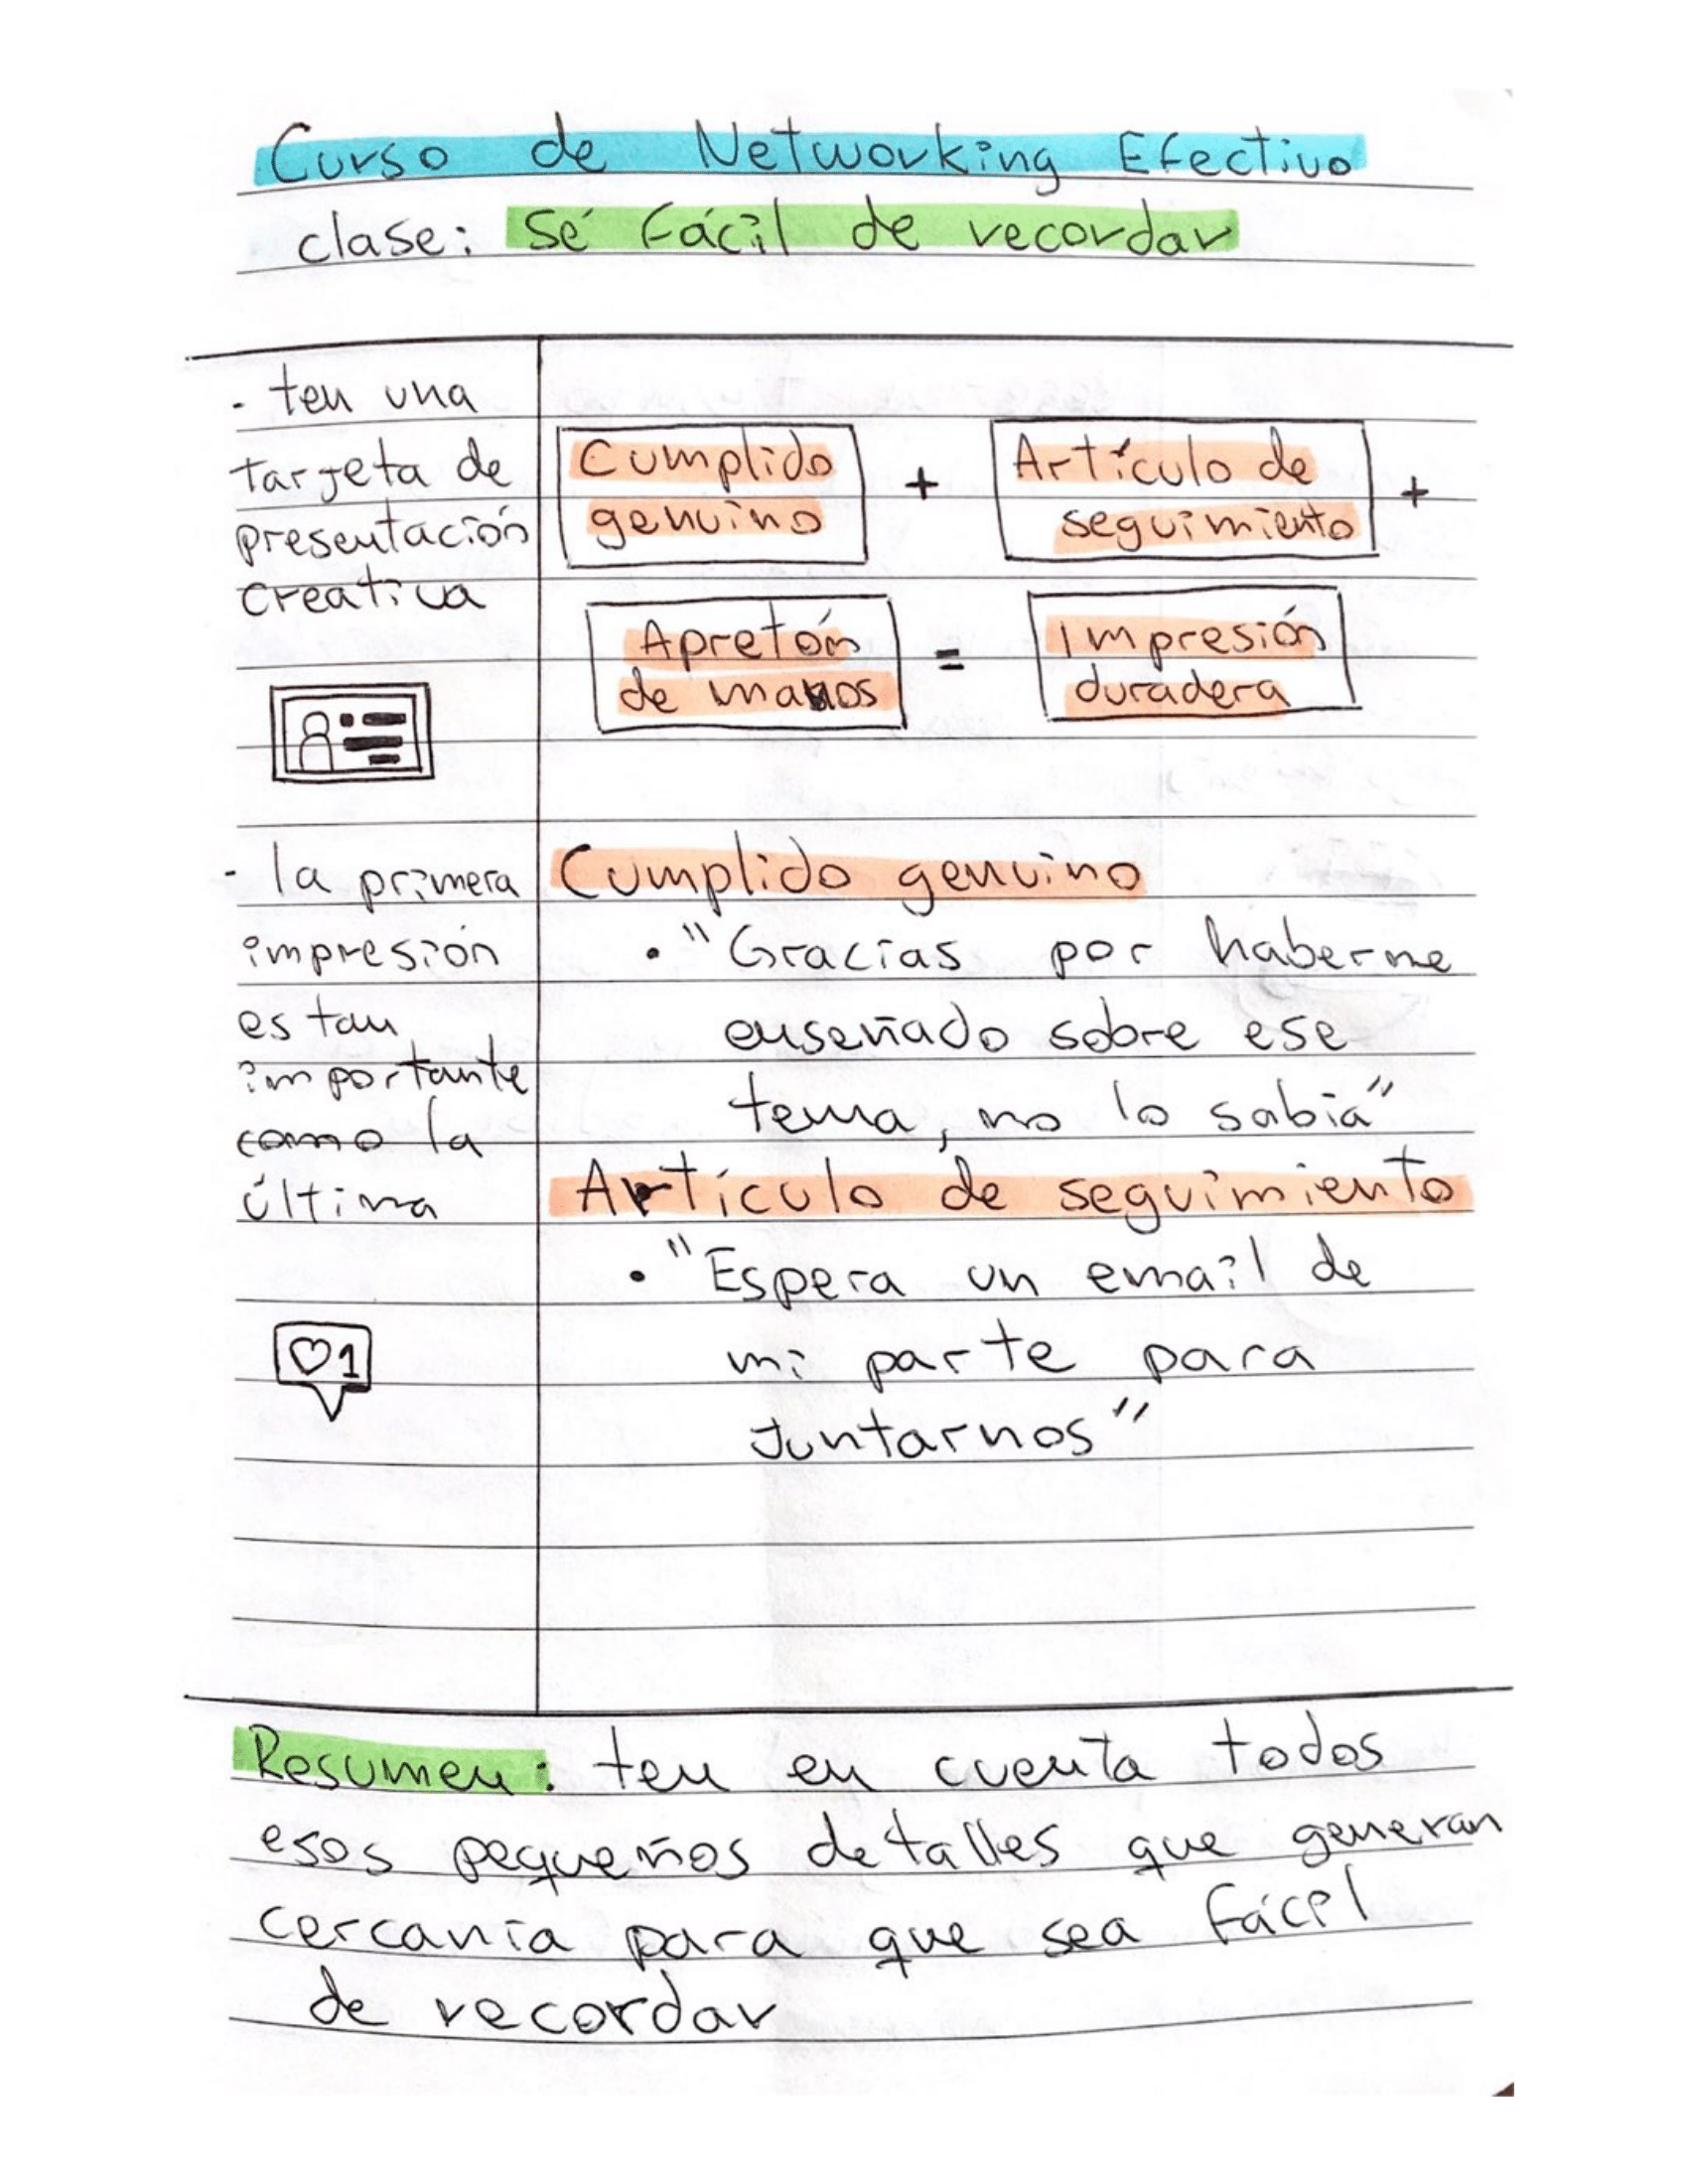 Curso de Networking Efectivo
clase: sé fácil de recordar
- ten una
targeta de
presentación
creativa
Cumplido
genuino
+
Artículo de
seguimiento
+
Apretón
de manos
=
Impresión
duradera
- la primera
impresión
es tan
importante
como la
última
1
Cumplido genuino
• "Gracias por haberme
enseñado sobre ese
tema, no lo sabía"
Artículo de seguimiento
• "Espera un email de
mi parte para
Juntarnos"
Resumen: ten en cuenta todos
esos pequeños detalles que generan
cercanía para que sea fácil
de recordar